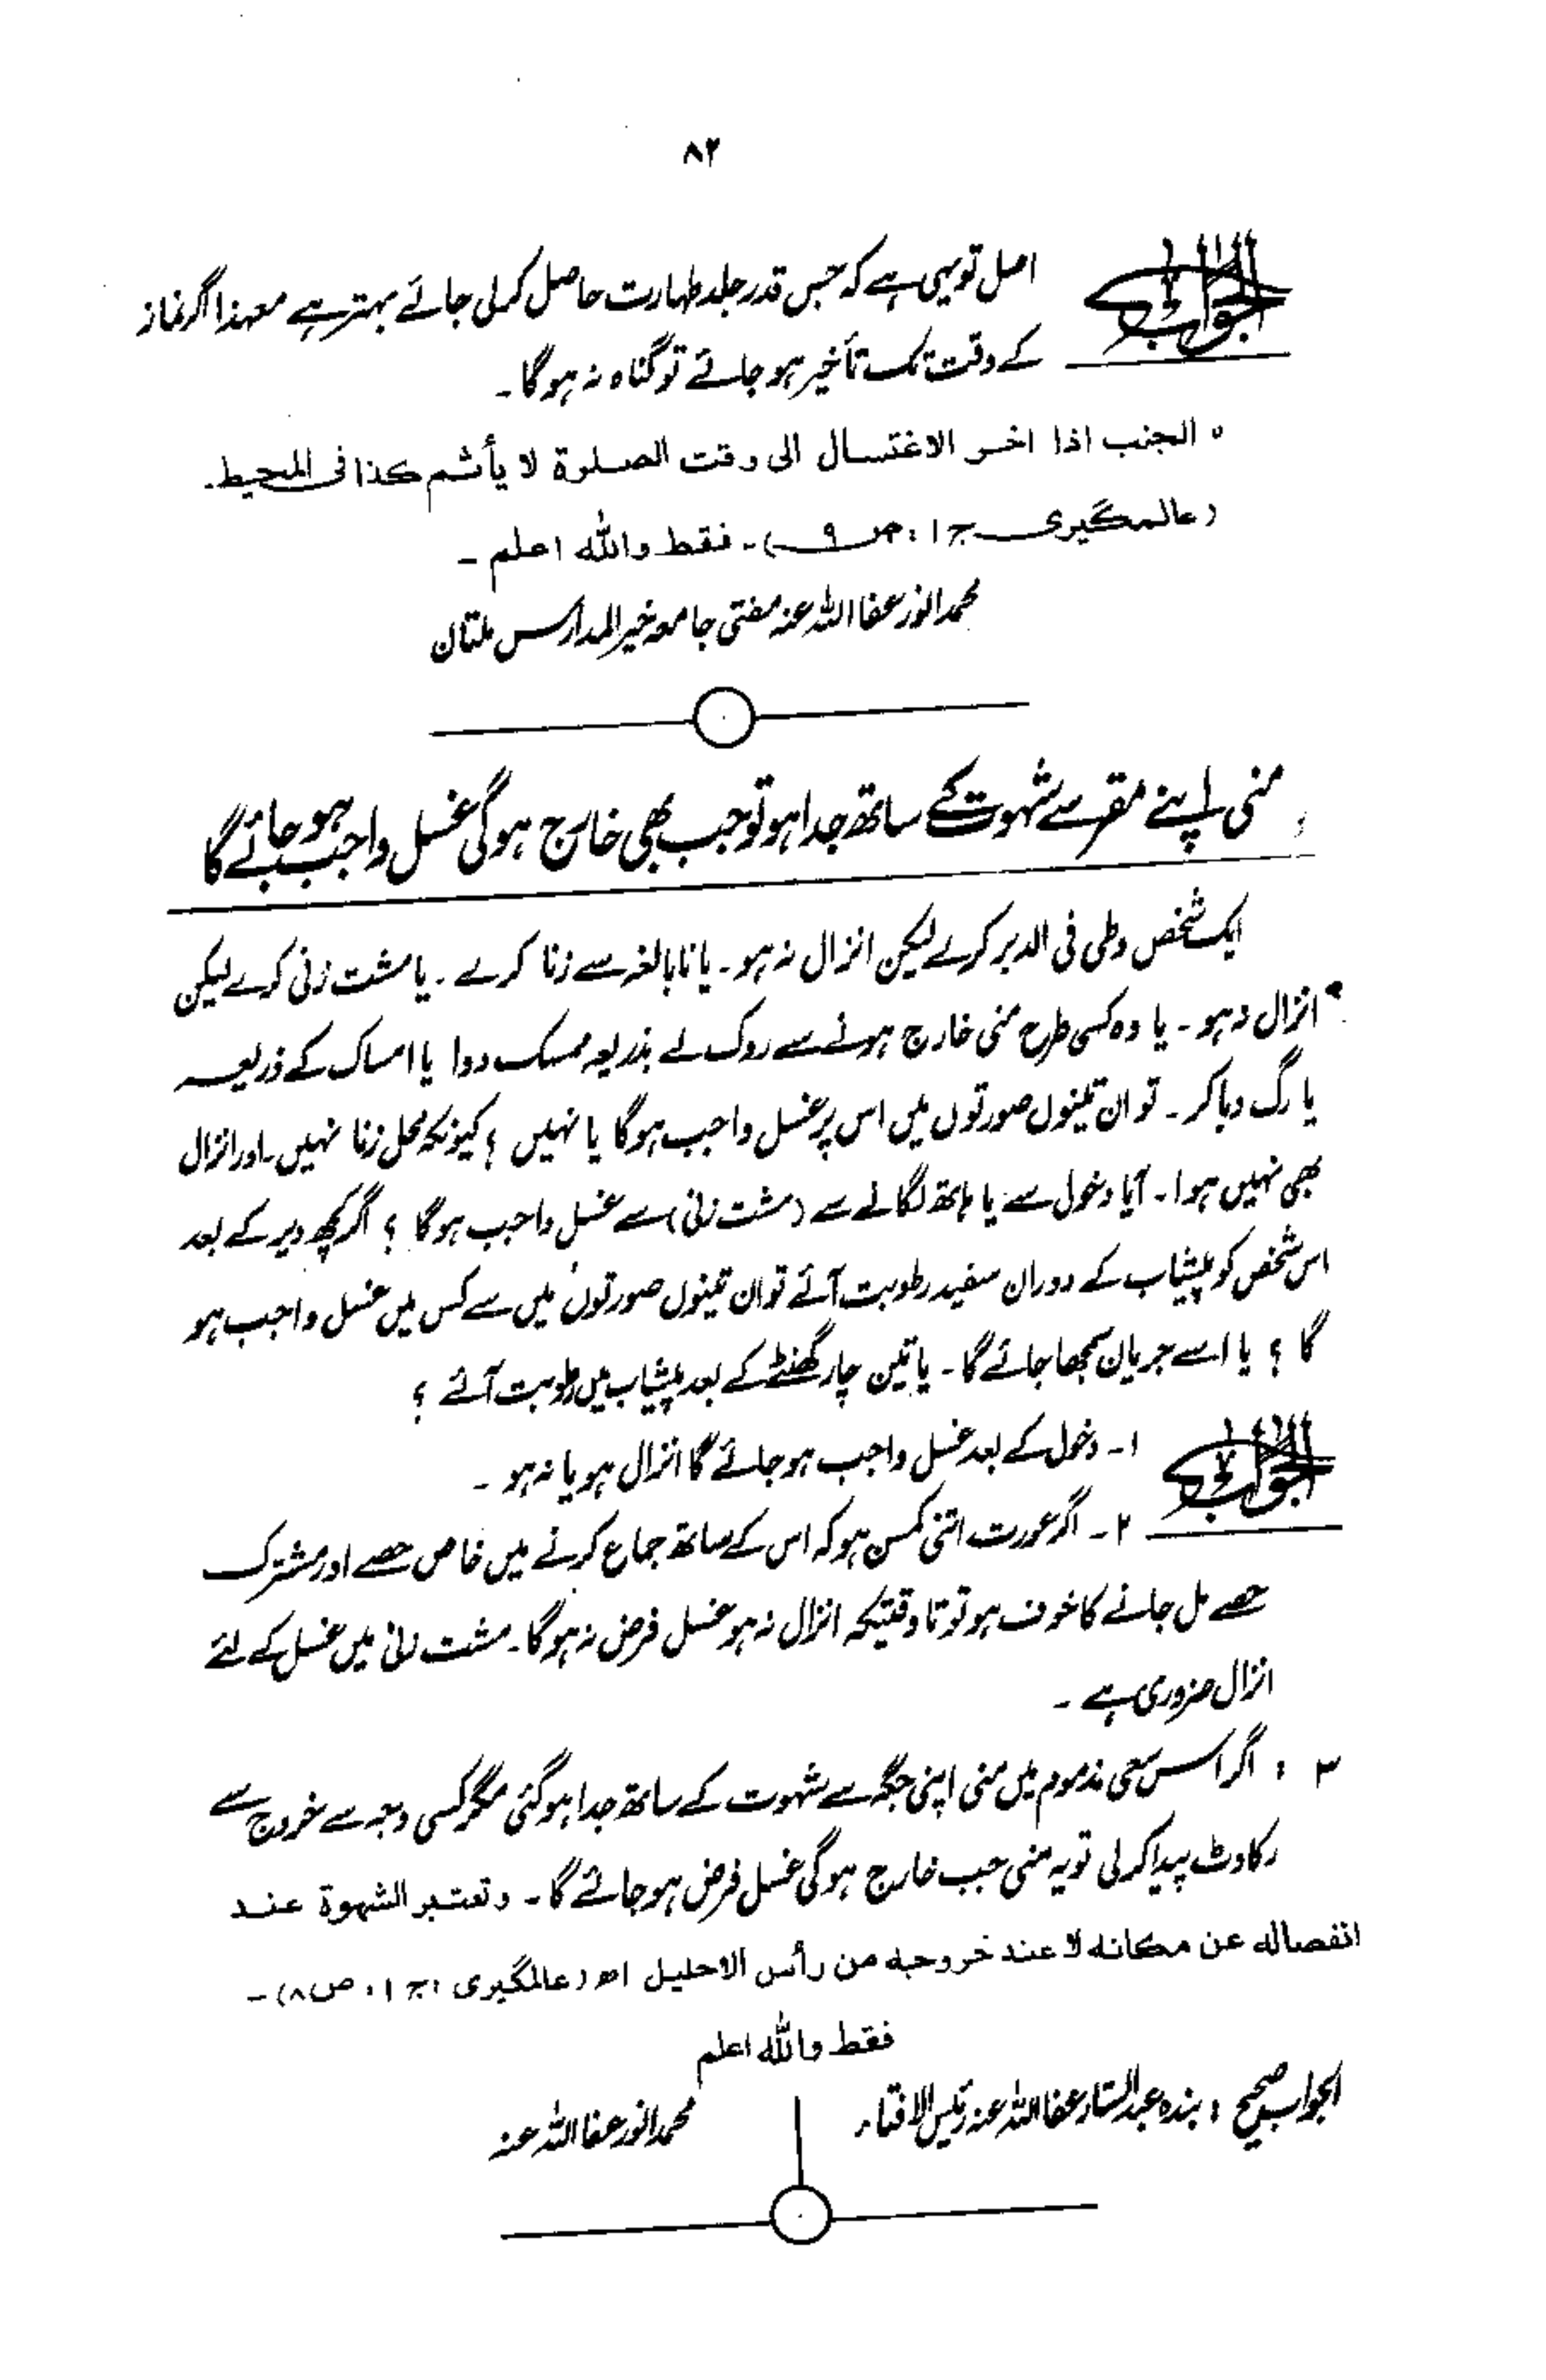 ۸۲
الجواب اصل تو یہی ہے کہ جس قدر جلد طہارت حاصل کر لی جائے بہتر ہے معہذا اگر نماز
کے وقت تک تأخیر ہو جائے تو گناہ نہ ہوگا۔
الجنب اذا اخر الاغتسال الی وقت الصلوۃ لا یأثم کذا فی المحیط۔
(عالمگیری ج ۱، ص ۹)۔ فقط واللہ اعلم۔
محمد انور عفا اللہ عنہ مفتی جامعہ خیر المدارس ملتان
منی اپنے مقر سے شہوت کے ساتھ جدا ہو تو جب بھی خارج ہوگی غسل واجب ہو جائے گا
ایک شخص وطی فی الدبر کرے لیکن انزال نہ ہو۔ یا نابالغہ سے زنا کرے۔ یا مشت زنی کرے لیکن
انزال نہ ہو۔ یا وہ کسی طرح منی خارج ہونے سے روک لے بذریعہ ممسک دوا یا امساک کے ذریعہ
یا رگ دبا کر۔ تو ان تینوں صورتوں میں اس پر غسل واجب ہوگا یا نہیں؟ کیونکہ محل زنا نہیں۔ اور انزال
بھی نہیں ہوا۔ آیا دخول سے یا ہاتھ لگانے سے (مشت زنی) سے غسل واجب ہوگا؟ اگر کچھ دیر کے بعد
اس شخص کو پیشاب کے دوران سفید رطوبت آئے تو ان تینوں صورتوں میں سے کس میں غسل واجب ہو
گا؟ یا اسے جریان سمجھا جائے گا۔ یا تین چار گھنٹے کے بعد پیشاب میں رطوبت آئے؟
الجواب ۱۔ دخول کے بعد غسل واجب ہو جائے گا انزال ہو یا نہ ہو۔
۲۔ اگر عورت اتنی کمسن ہو کہ اس کے ساتھ جماع کرنے میں خاص حصے اور مشترک
حصے مل جانے کا خوف ہو تو تاوقتیکہ انزال نہ ہو غسل فرض نہ ہوگا۔ مشت زنی میں غسل کے لئے
انزال ضروری ہے۔
۳؛ اگر اس سعی مذموم میں منی اپنی جگہ سے شہوت کے ساتھ جدا ہو گئی مگر کسی وجہ سے خروج سے
رکاوٹ پیدا کر لی تو یہ منی جب خارج ہوگی غسل فرض ہو جائے گا۔ وتعتبر الشہوۃ عند
انفصالہ عن مکانہ لا عند خروجہ من رأس الاحلیل اھ (عالمگیری، ج ۱، ص ۸)۔
فقط واللہ اعلم
الجواب صحیح؛ بندہ عبدالستار عفا اللہ عنہ رئیس الافتاء
محمد انور عفا اللہ عنہ